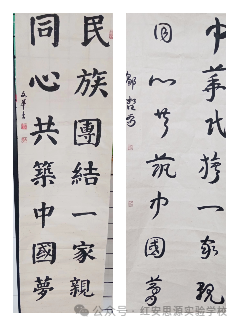 民族團結一家親
同心共築中國夢
中華民族一家親
同心共筑中國夢
公众号 · 红安思源实验学校